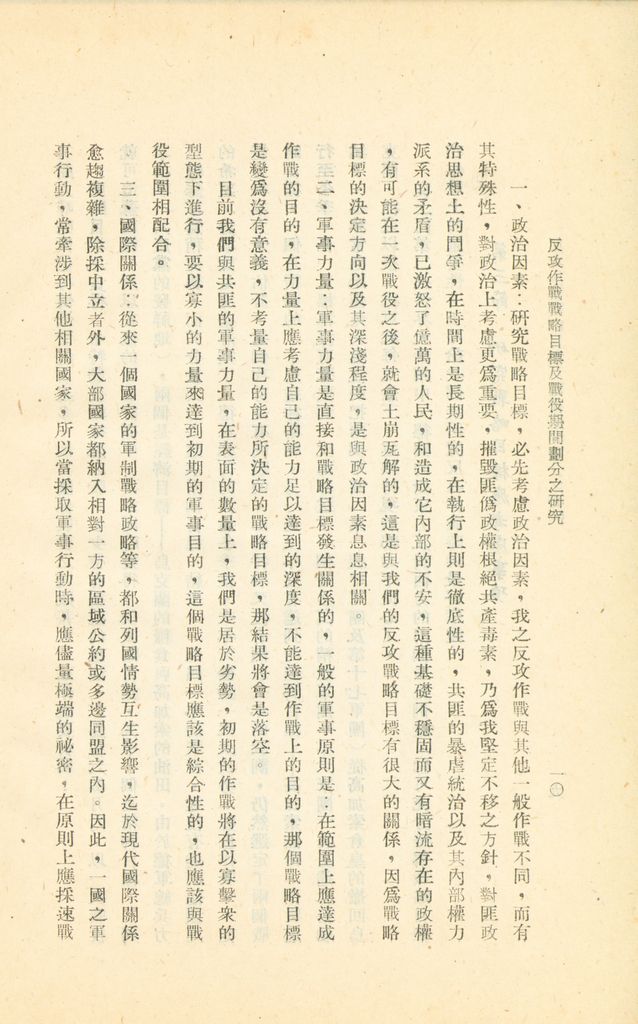 反攻作戰戰略目標及戰役期間劃分之研究
一〇
一、政治因素：研究戰略目標，必先考慮政治因素，我之反攻作戰與其他一般作戰不同，而有
其特殊性，對政治上考慮更爲重要，摧毀匪僞政權根絕共產毒素，乃爲我堅定不移之方針，對匪政
治思想上的鬥爭，在時間上是長期性的，在執行上則是徹底性的，共匪的暴虐統治以及其內部權力
派系的矛盾，已激怒了億萬的人民，和造成它內部的不安，這種基礎不穩固而又有暗流存在的政權
，有可能在一次戰役之後，就會土崩瓦解的，這是與我們的反攻戰略目標有很大的關係，因爲戰略
目標的決定方向以及其深淺程度，是與政治因素息息相關。
二、軍事力量：軍事力量是直接和戰略目標發生關係的，一般的軍事原則是：在範圍上應達成
作戰的目的，在力量上應考慮自己的能力足以達到的深度，不能達到作戰上的目的，那個戰略目標
是變爲沒有意義，不考量自己的能力所決定的戰略目標，那結果將會是落空。
目前我們與共匪的軍事力量，在表面的數量上，我們是居於劣勢，初期的作戰將在以寡擊衆的
型態下進行，要以寡小的力量來達到初期的軍事目的，這個戰略目標應該是綜合性的，也應該與戰
役範圍相配合。
三、國際關係：從來一個國家的軍制戰略政略等，都和列國情勢互生影響，迄於現代國際關係
愈趨複雜，除採中立者外，大部國家都納入相對一方的區域公約或多邊同盟之內。因此，一國之軍
事行動，常牽涉到其他相關國家，所以當採取軍事行動時，應儘量極端的祕密，在原則上應採速戰